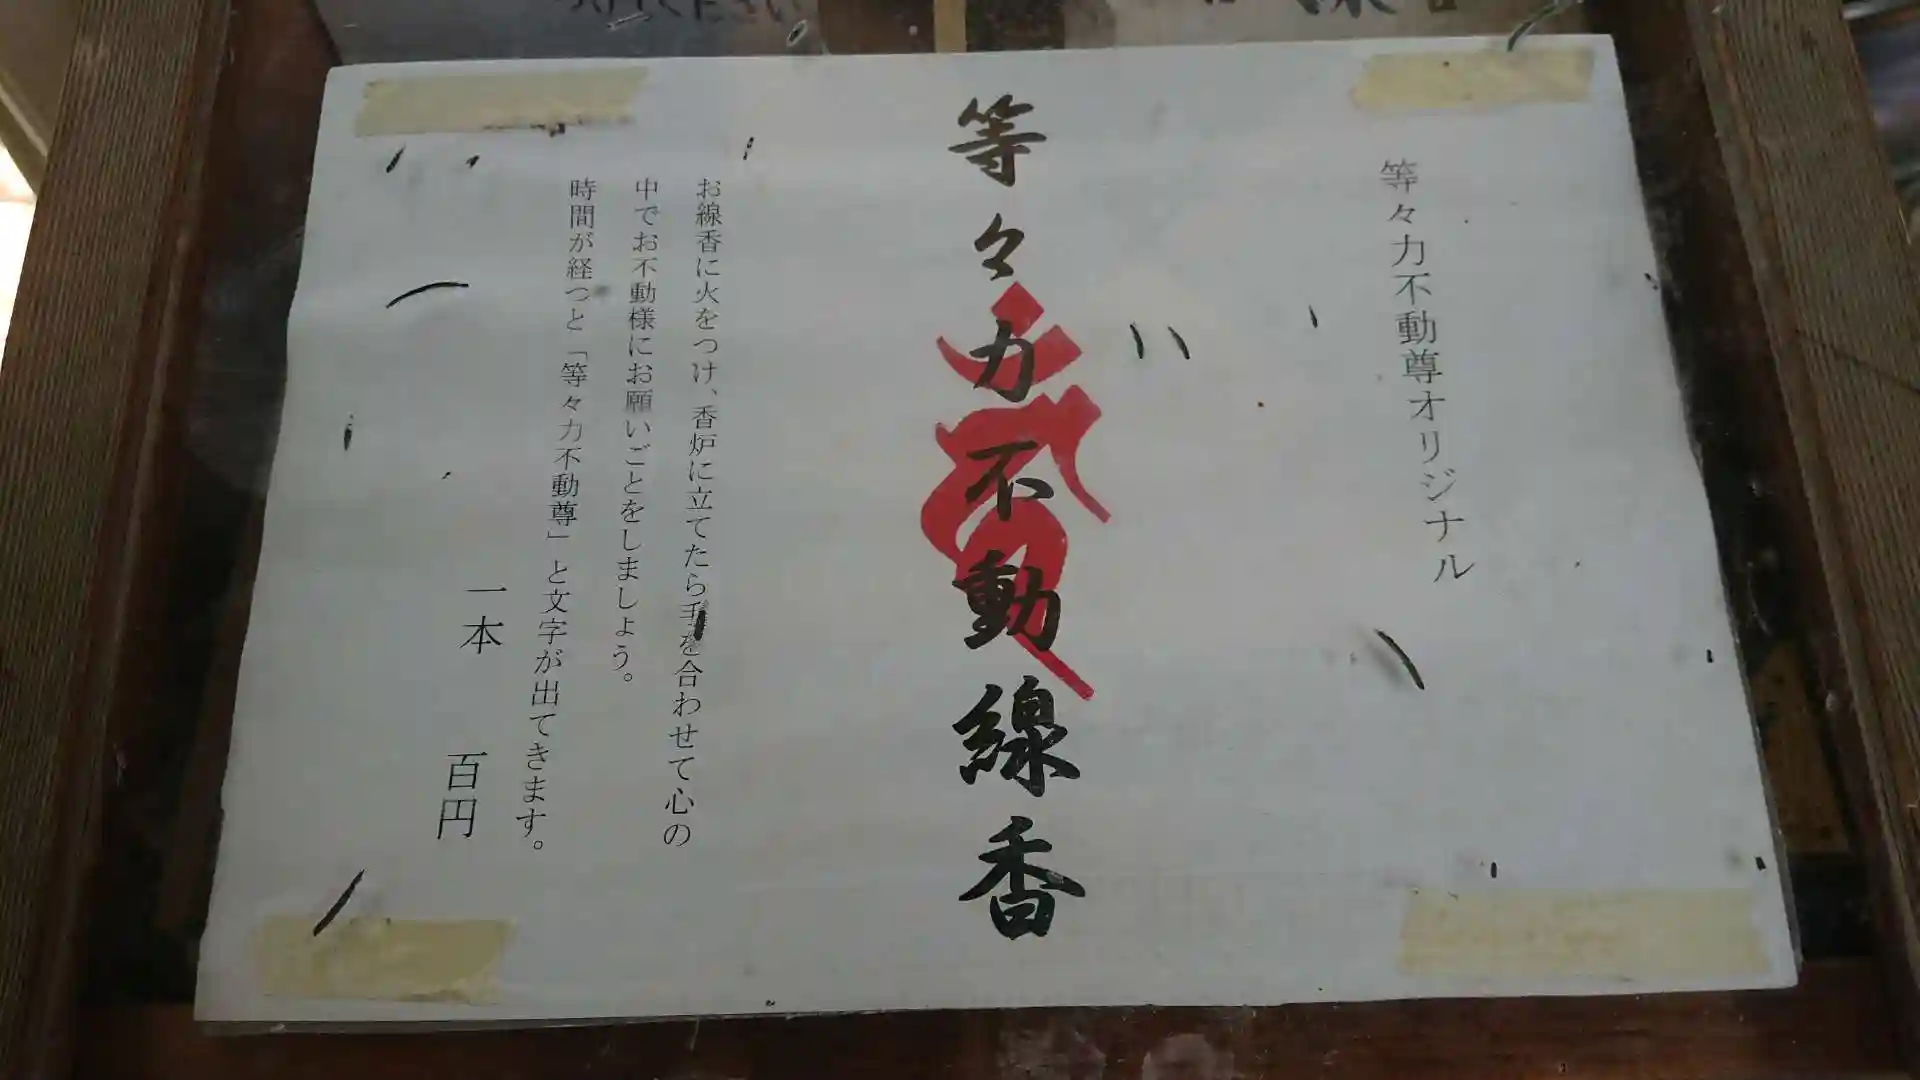 等々力不動尊オリジナル
等々力不動線香
お線香に火をつけ、香炉に立てたら手を合わせて心の
中でお不動様にお願いごとをしましょう。
時間が経つと「等々力不動尊」と文字が出てきます。
一本　百円